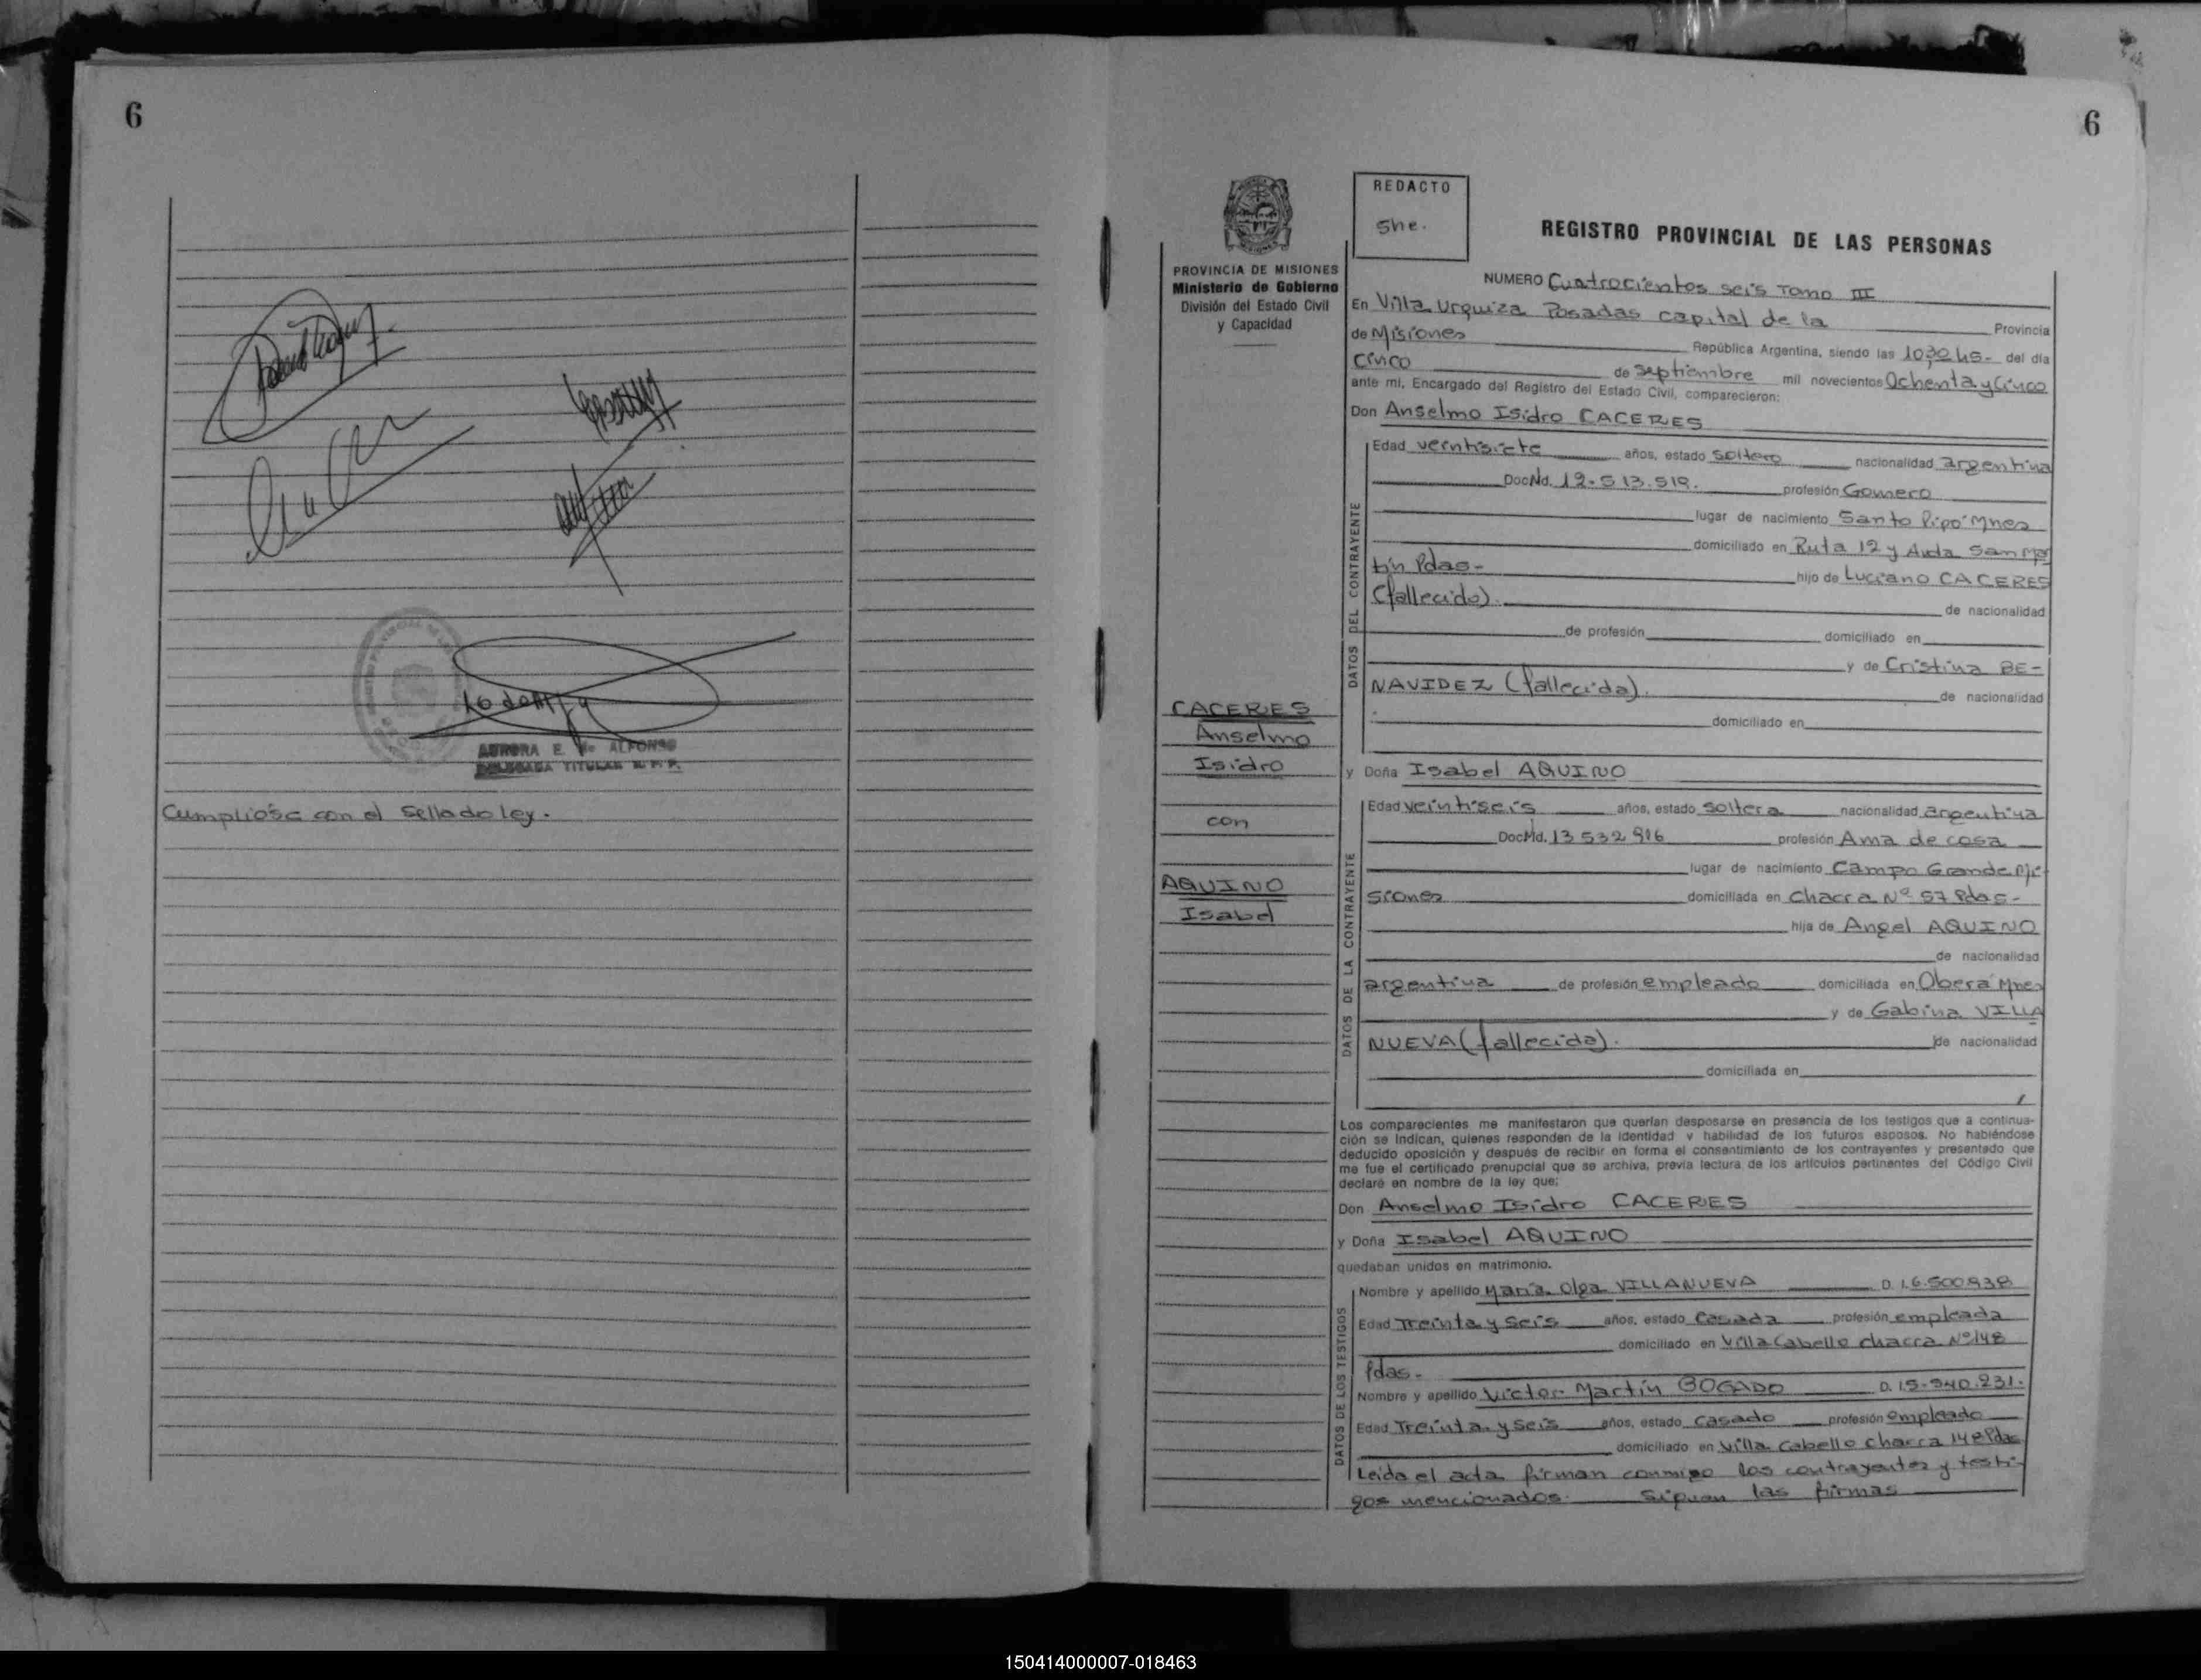 6
Cumpliose con el Sellado ley.
AURORA E. de ALFONSO
DELEGADA TITULAR R. P. P.
6
PROVINCIA DE MISIONES
Ministerio de Gobierno
División del Estado Civil
y Capacidad
REDACTO
She.
REGISTRO PROVINCIAL DE LAS PERSONAS
NUMERO Cuatrocientos seis Tomo III
En Villa Urquiza Posadas capital de la Provincia
de Misiones República Argentina, siendo las 10,30 hs- del día
Cinco de Septiembre mil novecientos Ochenta y Cinco
ante mi, Encargado del Registro del Estado Civil, comparecieron:
Don Anselmo Isidro CACERES
DATOS DEL CONTRAYENTE
Edad veintisiete años, estado soltero nacionalidad argentina
Doc Nd. 12.513.519. profesión Gomero
lugar de nacimiento Santo Pipó Mnes
domiciliado en Ruta 12 y Avda San Mar
tín Pdas- hijo de Luciano CACERES
(fallecido). de nacionalidad
de profesión domiciliado en
y de Cristina BE-
NAVIDEZ (fallecida). de nacionalidad
domiciliado en
y Doña Isabel AQUINO
CACERES
Anselmo
Isidro
con
AQUINO
Isabel
DATOS DE LA CONTRAYENTE
Edad veintiseis años, estado soltera nacionalidad argentina
Doc Nd. 13 532 916 profesión Ama de casa
lugar de nacimiento Campo Grande Mi-
siones domiciliada en Chacra Nº 57 Pdas-
hija de Angel AQUINO
de nacionalidad
argentina de profesión empleado domiciliada en Oberá Mnes
y de Gabina VILLA
NUEVA (fallecida). de nacionalidad
domiciliada en
Los comparecientes me manifestaron que querían desposarse en presencia de los testigos que a continua-
ción se indican, quienes responden de la identidad y habilidad de los futuros esposos. No habiéndose
deducido oposición y después de recibir en forma el consentimiento de los contrayentes y presentado que
me fue el certificado prenupcial que se archiva, previa lectura de los artículos pertinentes del Código Civil
declaré en nombre de la ley que:
Don Anselmo Isidro CACERES
y Doña Isabel AQUINO
quedaban unidos en matrimonio.
DATOS DE LOS TESTIGOS
Nombre y apellido María Olga VILLANUEVA D. I. 6.500.838
Edad Treinta y seis años, estado Casada profesión empleada
domiciliado en Villa Cabello chacra Nº 148
Pdas-
Nombre y apellido Victor Martín BOGADO D. I 5.940.231.
Edad Treinta y seis años, estado casado profesión empleado
domiciliado en Villa Cabello chacra 148 Pdas
Leida el acta firman conmigo los contrayentes y testi-
gos mencionados. Siguen las firmas
150414000007-018463